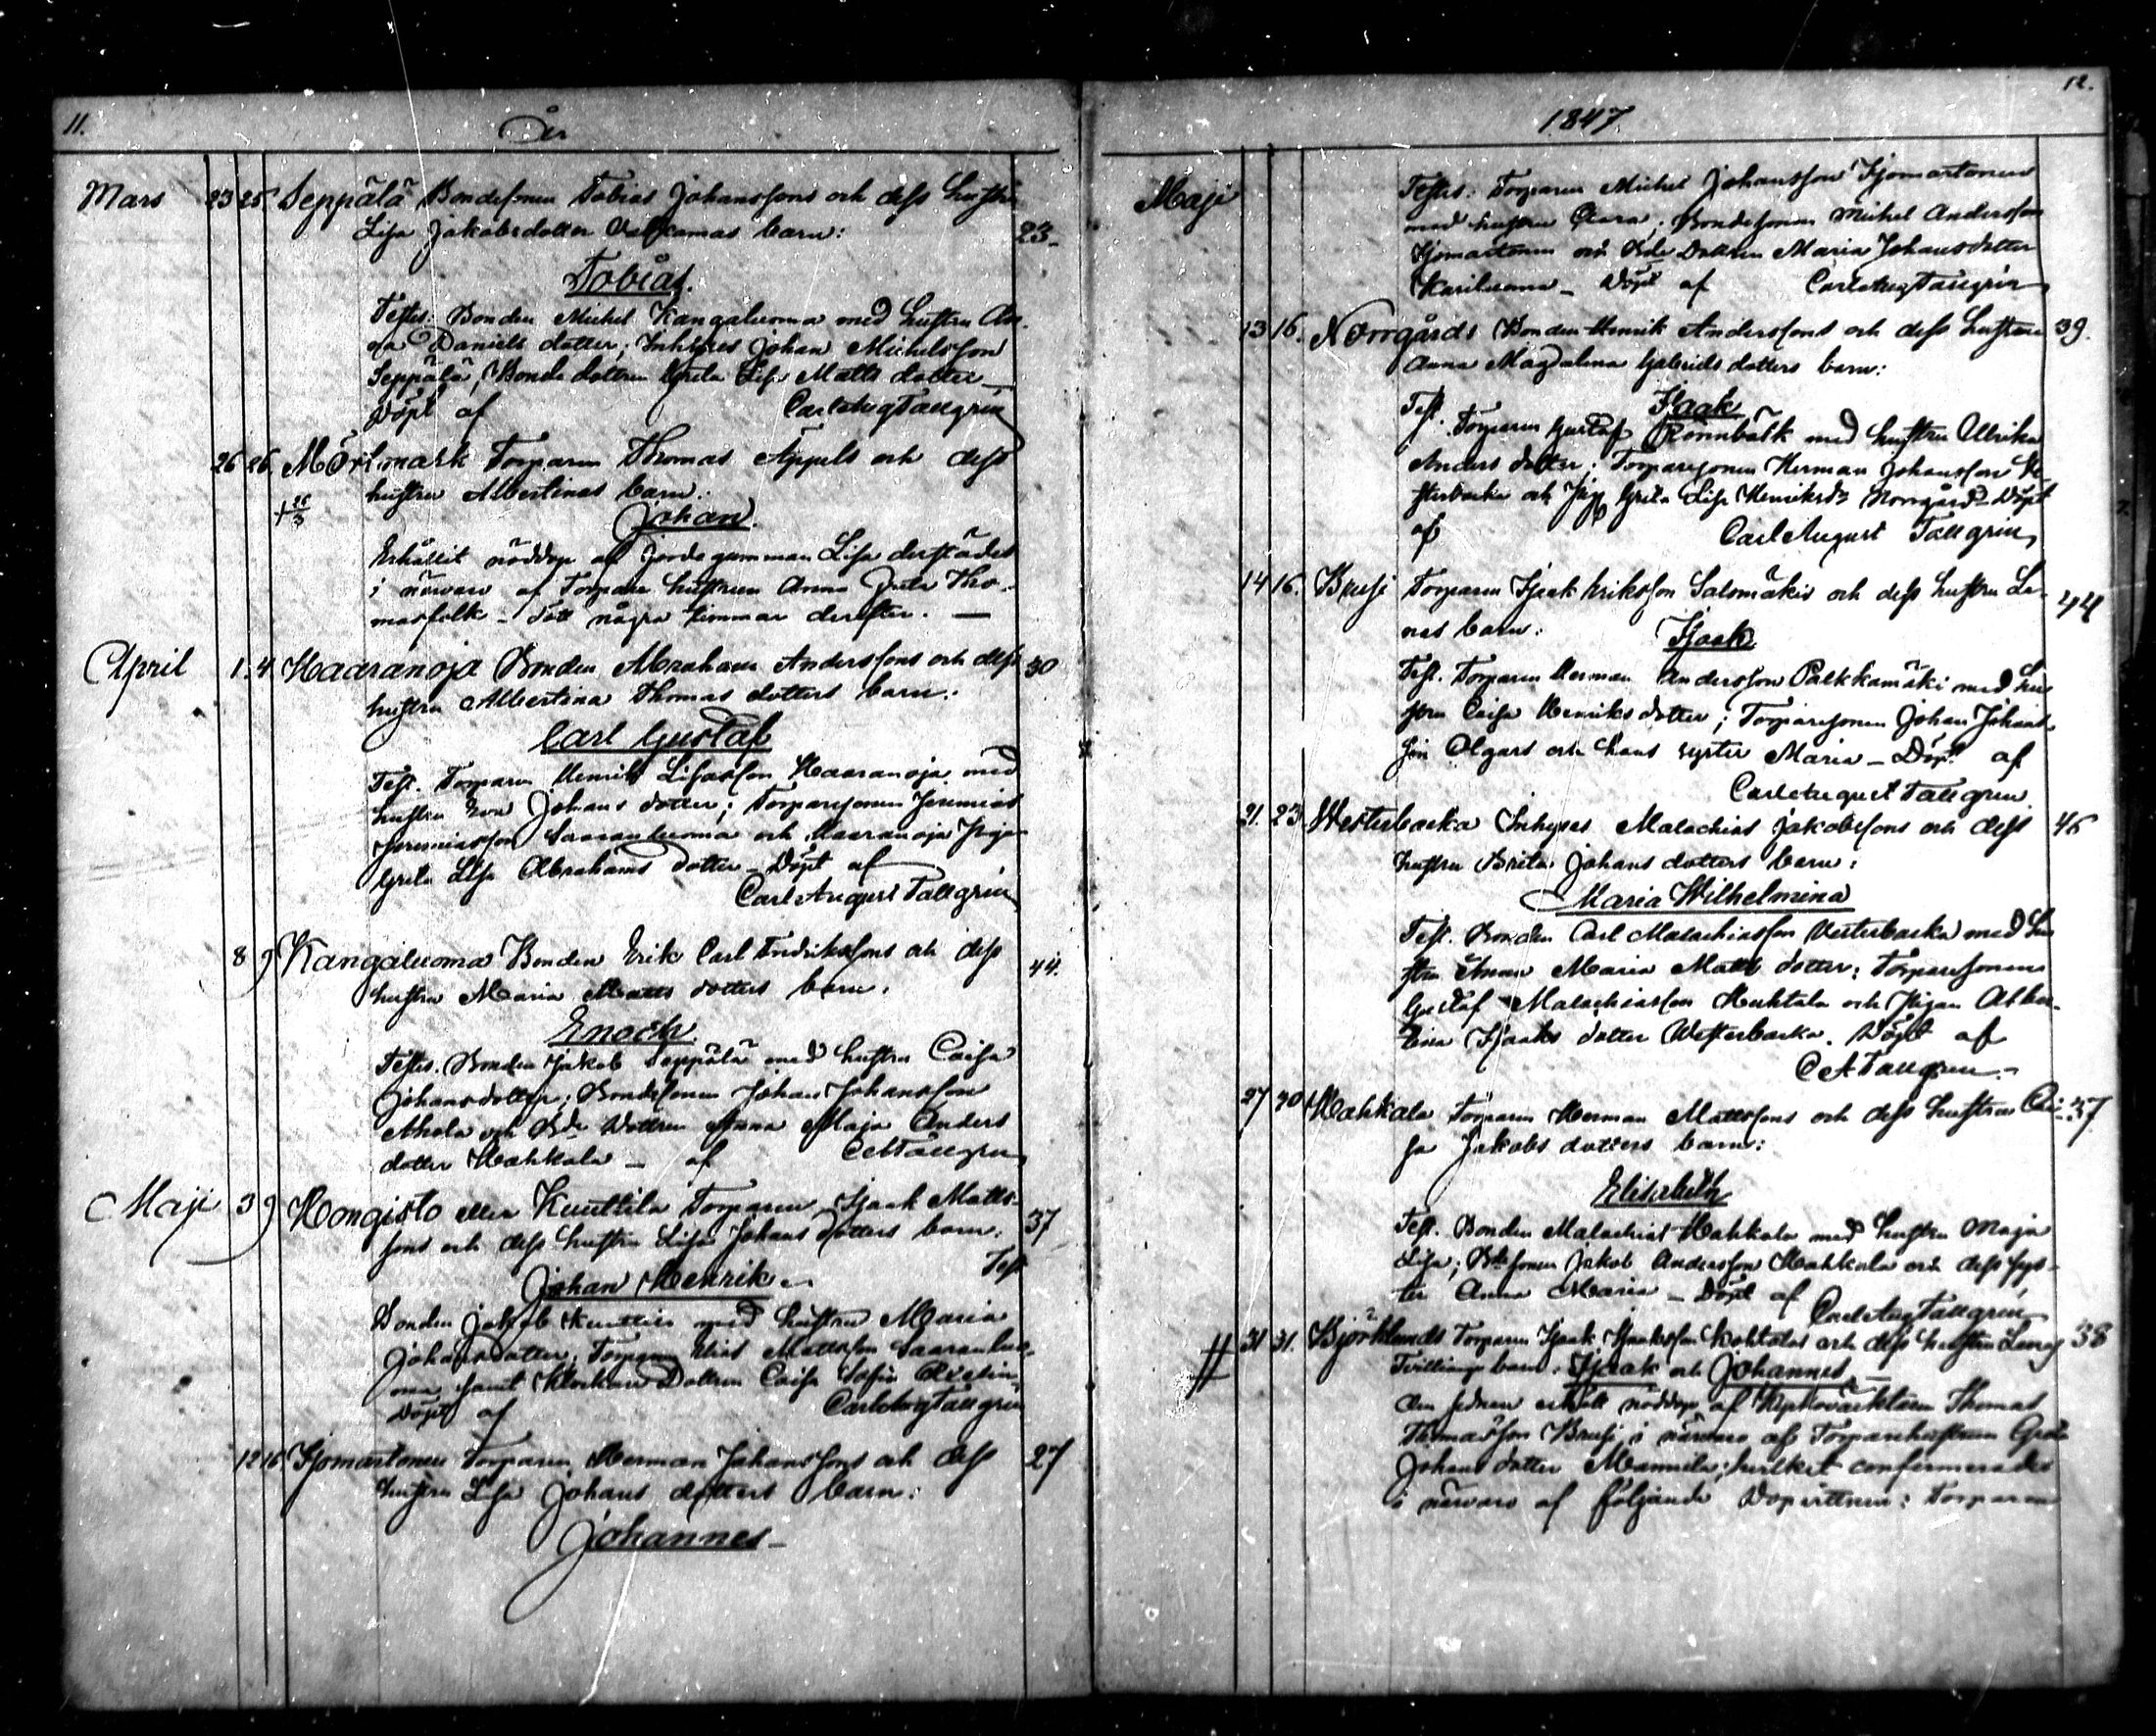 11.
År
Mars 23 25 Seppälä Bondesonen Tobias Johanssons och dess hustru
Lisa Jakobsdotter barn: 23
Tobias.
Testes: Bonden Michel Kangaluoma med hustru An-
na Daniels dotter; Inhyses Johan Michelsson
Seppälä, Bonde dottren Greta Lisa Matts dotter
Döpt af Carl Aug Tallgrén
26 26. Mörkmark Torparen Thomas Äppels och dess
+26/3 hustru Albertinas barn:
Johan.
Erhållit nöddop af Jordegumman Lisa derstädes
i närvaro af Torpare hustrun Anna Greta Tho-
masfolk - dött några timmar derefter. —
April 1. 4. Haaranoja Bonden Abraham Anderssons och dess 30
hustru Albertina Thomas dotters barn:
Carl Gustaf
Test. Torparen Henrik Haaranoja med
hustru Eva Johans dotter; Torparesonen Jeremias
Jeremiasson Saaranluoma och Haaranoja Pigan
Greta Lisa Abrahams dotter - Döpt af
Carl August Tallgrén
8 9 Kangaluoma Bonden Erik Carl Fredrikssons och dess 44.
hustru Maria Matts dotters barn.
Enoch.
Testes. Bonden Jakob Seppälä med hustru Caisa
Johansdotter; Bondesonen Johan Johansson
Ahola och Bde Dottren Anna Maja Anders
dotter Hahkala — af CATallgrén
Maji 3 9 Kongisto eller Knuttila Torparen Isaak Matts-
sons och dess hustru Lisa Johans dotters barn. 37
Johan Henrik. — Test
Bonden Jakob med hustru Maria
Johansdotter; Torparen Elias Mattsson Saaranluo-
ma samt Klockare Dottren Caisa Sofia
Döpt af Carl Aug Tallgrén
12 16 Sjomartonen Torparen Herman Johanssons och dess 27
hustru Lisa Johans dotters barn:
Johannes —
12.
1847.
Maji Testes: Torparen Michel Johansson Sjomartonen
med hustru Clara; Bondesonen Michel Andersson
Sjomartonen och Bde Dottren Maria Johansdotter
Kariluoma — Döpt af Carl Aug Tallgrén
13 16. Norrgårds Bonden Henrik Anderssons och dess hustru 39.
Anna Magdalena Gabriels dotters barn:
Isaak
Test. Torparen Gustaf Rönnbäck med hustru Ulrika
Anders dotter; Torparesonen Herman Johansson We-
sterbacka och Pig. Greta Lisa Henriksdr Norrgård - Döpt
af Carl August Tallgrén
14 16. Brusi Torparen Isaak Eriksson Salomäkis och dess hustru Le- 44
nas barn: Isaak
Test. Torparen Herman Andersson Palkkamäki med hu-
stru Caisa Henriks dotter; Torparesonen Johan Johans-
son Olgars och hans syster Maria — Döpt af
Carl August Tallgrén
21. 23 Westerbacka Inhyses Malachias Jakobssons och dess 46
hustru Brita Johans dotters barn:
Maria Wilhelmina
Test. Bonden Carl Malachiasson Westerbacka med hu-
stru Anna Maria Matts dotter; Torparesonen
Gustaf Malachiasson Huhtala och Pigan Alber-
tina Isaaks dotter Westerbacka. Döpt af
C A Tallgrén. —
27 30 Hahkala Torparen Herman Mattssons och dess hustru Cai- 37
sa Jakobs dotters barn:
Elisabeth
Test. Bonden Malachias Hahkala med hustru Maja
Lisa; Bdesonen Jakob Andersson Hahkala och dess sys-
ter Anna Maria — Döpt af Carl Aug Tallgrén
# 31 31. Björklunds Torparen Isaak Isaksson Kohtalas och dess hustru Lenas 38
Tvillinge barn: Isaak och Johannes —
den sednare erhållit nöddop af Thomas
Thomasson Brusi i närvaro af Torparehustrun Greta
Johans dotter Mannila; hvilket confirmerades
i närvaro af följande Dopvittnen: Torparen